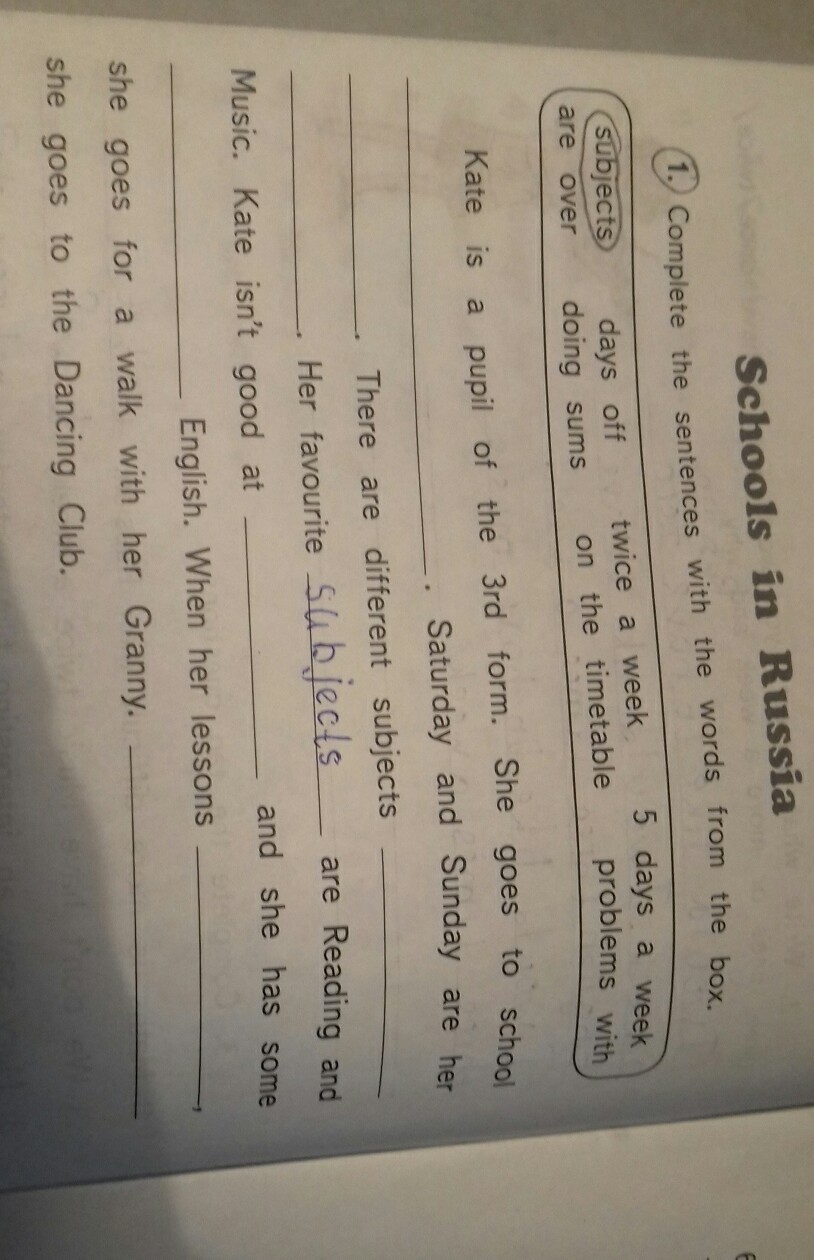 Schools in Russia
1. Complete the sentences with the words from the box.
subjects days off twice a week 5 days a week
are over doing sums on the timetable problems with
Kate is a pupil of the 3rd form. She goes to school
____________. Saturday and Sunday are her
____________. There are different subjects ____________
____________. Her favourite subjects are Reading and
Music. Kate isn't good at ____________ and she has some
____________ English. When her lessons ____________,
she goes for a walk with her Granny. ____________
she goes to the Dancing Club.